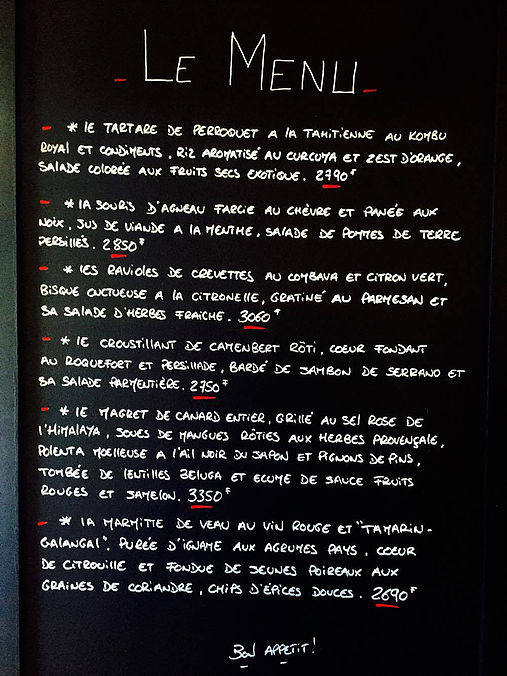 - LE MENU -
- * lE TARTARE DE PERROQUET A lA TAHITIENNE AU KOMBU
ROYAl ET CONDIMENTS, RIZ AROMATISÉ AU CURCUMA ET ZEST D'ORANGE,
SALADE COLORÉE AUX FRUITS SECS EXOTIQUE. 2790F
- * lA SOURIS D'AGNEAU FARCIE AU CHÈVRE ET PANÉE AUX
NOIX, JUS DE VIANDE A LA MENTHE, SALADE DE POMMES DE TERRE
PERSILLÉS. 2850F
- * lES RAVIOLES DE CREVETTES AU COMBAVA ET CITRON VERT,
BISQUE ONCTUEUSE A LA CITRONELLE, GRATINÉ AU PARMESAN ET
SA SALADE D'HERBES FRAICHE. 3060F
- * lE CROUSTILLANT DE CAMENBERT RÔTI, COEUR FONDANT
AU ROQUEFORT ET PERSILLADE, BARDÉ DE JAMBON DE SERRANO ET
SA SALADE PARMENTIÈRE. 2750F
- * lE MAGRET DE CANARD ENTIER, GRILLÉ AU SEL ROSE DE
l'HIMALAYA, JOUES DE MANGUES RÔTIES AUX HERBES PROVENÇALE,
POLENTA MOELLEUSE A l'AIL NOIR DU JAPON ET PIGNONS DE PINS,
TOMBÉE DE LENTILLES BELUGA ET ECUME DE SAUCE FRUITS
ROUGES ET SAMELON. 3350F
- * lA MARMITTE DE VEAU AU VIN ROUGE ET "TAMARIN-
GALANGAL", PURÉE D'IGNAME AUX AGRUMES PAYS, COEUR
DE CITROUILLE ET FONDUE DE JEUNES POIREAUX AUX
GRAINES DE CORIANDRE, CHIPS D'ÉPICES DOUCES. 2690F
BON APPETIT!